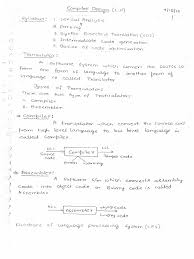 Compiler Design (CD)
Syllabus: 1. Lexical Analysis
2. Parsing
3. Syntax Directed Translation (SDT)
4. Intermediate code generation
5. Basics of code optimization
Translator:
A Software System which convert the source
from one form of language to another form of
language is called Translator
Types of Translators:
There are two types of Translators:
* Compiler
* Assembler
* Compiler:
A Translator which convert the
from high level language to low level language is
called Compiler
HLL → Compiler → LLL
Error Warning
* Assembler:
A Software System which converts assembly
code into object code or binary code is called
Assembler
→ Assembler →
code
Structure of Language processing System (LPS)